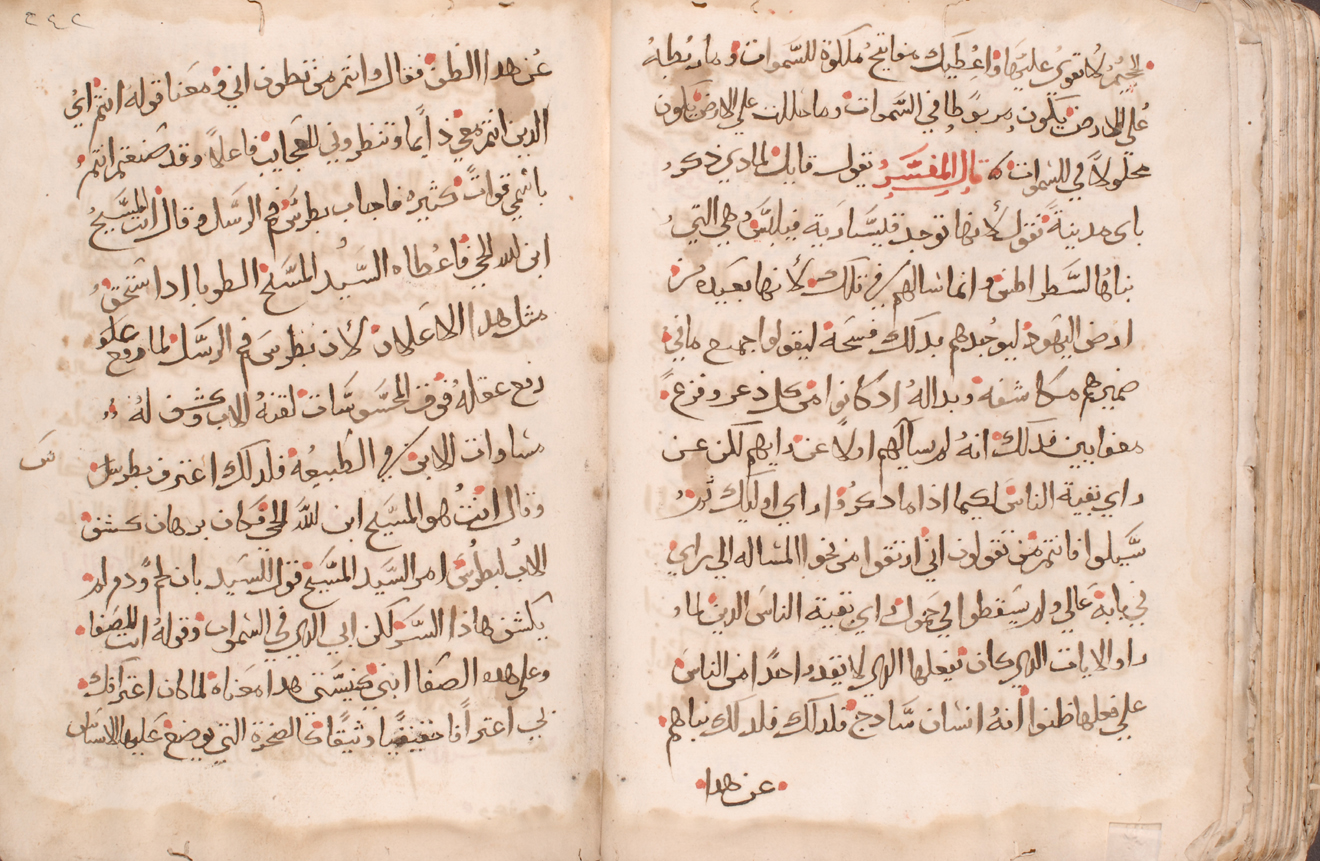 الجحيم لا تقوي عليها واعطيك مفاتيح ملكوة السموات وما ربطه
على الارض يكون مربوطا في السموات وما حللت على الارض يكون
محلولا في السموات قال المفسر نقول قايل لماذي ذكر
باى مدينة نقول لانها توجد قيسارية فيلبس وهي التي
وانما سالهم في تلك لانها بعيده من
ارض اليهود ليوجدهم بدلك فسحة ليقولوا جميع ما في
ضميرهم مكاشفه وبداله اد كانوا من كل ذعر وفزع
معفا بين فدلك انه لم يسالهم اولا عن رايهم لكن عن
راي بقية الناس لكيما اذا ما دكروا راي اوليك
سيلوا فانتم من تقولون اني ارتقوا من نحو المساله الي راي
عالي ولم يسقطوا في راي بقية الناس الدين لما
راو الايات الدي كان يفعلها الدي لا يقدر احدا من الناس
علي فعلها ظنوا انه انسان سادج فلدلك فلدلك نباهم
عن هدا
عن هدا الظن فقال وانتم من تظنون اني في معنا قوله انتم اي
الدين انتم معي دايما وتنظروني للعجايب فاعلا وقد صنعتم انتم
باسمي قوات كثيره فاجاب بطرس فم الرسل وقال انت المسيح
ابن الله الحي فاعطاه السيد المسيح الطوبا اد استحق
مثل هدا الاعلان لان بطرس فم الرسل لما رفع علو
رفع عقله فوق المحسوسات لقنه الاب وكشف له
مساوات الابن في الطبيعه فلدلك اعترف بطرس
وقال انت هو المسيح ابن الله الحي فكان برهان كشف
الاب لبطرس امر السيد المسيح قول السيد بان لحم ودم لم
يكشف هاذا السر لكن ابي الدي في السموات وقوله انت الصفا
وعلى هده الصفا ابني كنيستي هدا معناه لما كان اعترافك
بي اعترافا حقيقيا وثيقا كالصخرة التي يوضع عليها الاساس